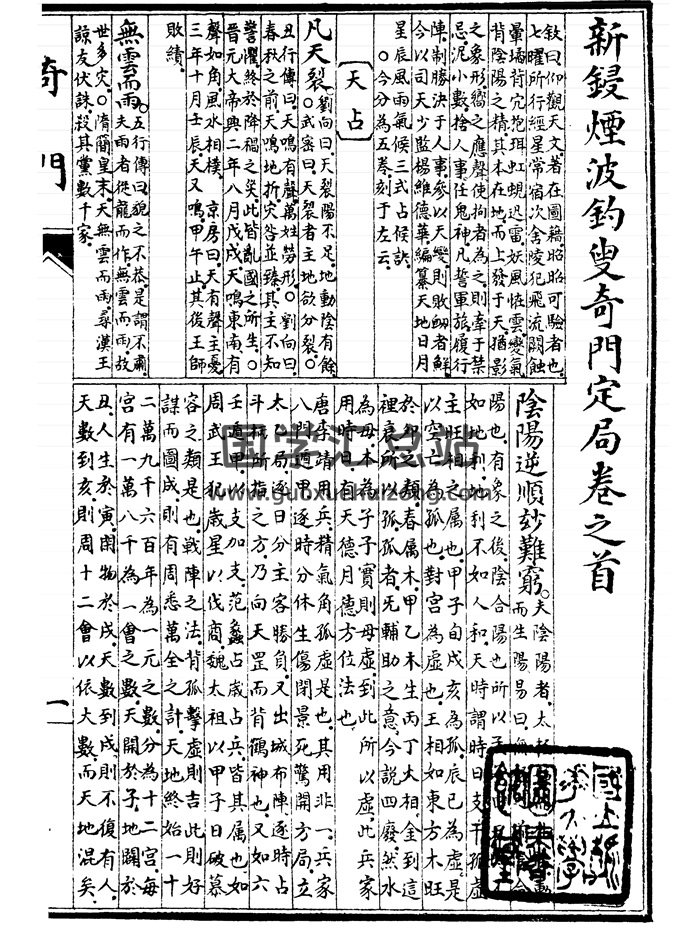 新鋟煙波釣叟奇門定局卷之首
欽曰仰觀天文著在圖籍昭昭可驗者也
七曜所行經星常宿次舍陵犯飛流鬭蝕
暈墧背穴抱珥虹蜺迅雷妖風恠雲變氣
背陰陽之精其本在地而上發于天猶影
之象形嚮之應聲使拘者為之則牽于禁
忌泥小數捨人事任鬼神凡誓軍旅履行
陣制勝決于人事參以天變則敗衂者鮮
今以司天少監楊維德華編纂天地日月
星辰風雨氣候三式占候訣
○今分為五卷刻于左云
天占
凡天裂 劉向曰天裂陽不足地動陰有餘
○武密曰天裂者主地欲分裂○
丑行傳曰天鳴有聲萬姓勞形○劉向曰
春秋之前天鳴地折灾咎並臻其主不知
警懼終於降禍之矣此皆亂國之所生○
晉元大帝興二年八月戊戌天鳴東南有
聲如角風水相樸 京房曰天有聲主憂
三年十月壬辰天又鳴甲午止其後王師
敗績
無雲而雨 五行傳曰貌之不恭是謂不肅
夫雨者從龍而作無雲而雨故
世多灾○隋簡皇末天無雲而雨 漢王
諒友伏誅殺其黨數千家
陰陽逆順妙難窮 夫陰陽者太極
而生陽易曰
陽也有象之後陰合陽也所以子
如地利地利不如人和天時謂時日支干孤虛
主旺相之属也甲子旬戌亥為孤辰巳為虛是
以空亡為孤也對宮為虛也王相如東方木旺
於卯之類春属木甲乙木生丙丁大相金到這
裡衰所以孤孤者旡輔助之意今說四廢然水
為母本為子子實則母虛到此所以虛此兵家
用時日有天德月德方位法也
唐李靖用兵精氣角孤虛是也其用非一兵家
八門遁甲逐時分休生傷閉景死驚開方局立
太乙局逐日分主客勝負又出城布陣逐時占
斗柄所指之方乃向天罡而背鶴神也又如六
壬遁甲以支加支范蠡占歲占兵皆其属也如
周武王犯歲星以伐商魏太祖以甲子日破慕
容之類是也戰陣之法背孤擊虛則吉此則好
謀而圖成則有周悉萬全之計天地終始一十
二萬九千六百年為一元之數分為十二宮每
宮有一萬八千為一會之數天開於子地闢於
丑人生於寅閉物於戌天數到戌則不復有人
天數到亥則周十二會以依大數而天地混矣
奇門
一
国学汇总站
www.guoxuehuizong.com